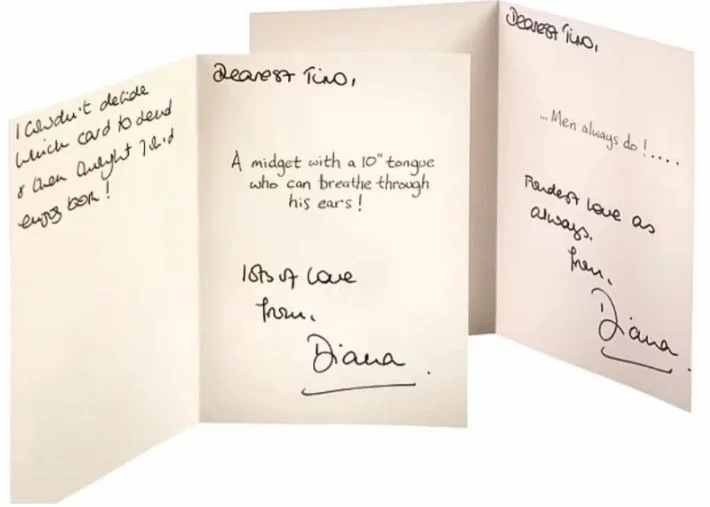 I couldn't decide
which card to send
& then thought I'd
enjoy both!
Dearest Tino,
A midget with a 10" tongue
who can breathe through
his ears!
lots of love
from,
Diana.
Dearest Tino,
... Men always do!....
Fondest love as
always.
from,
Diana.